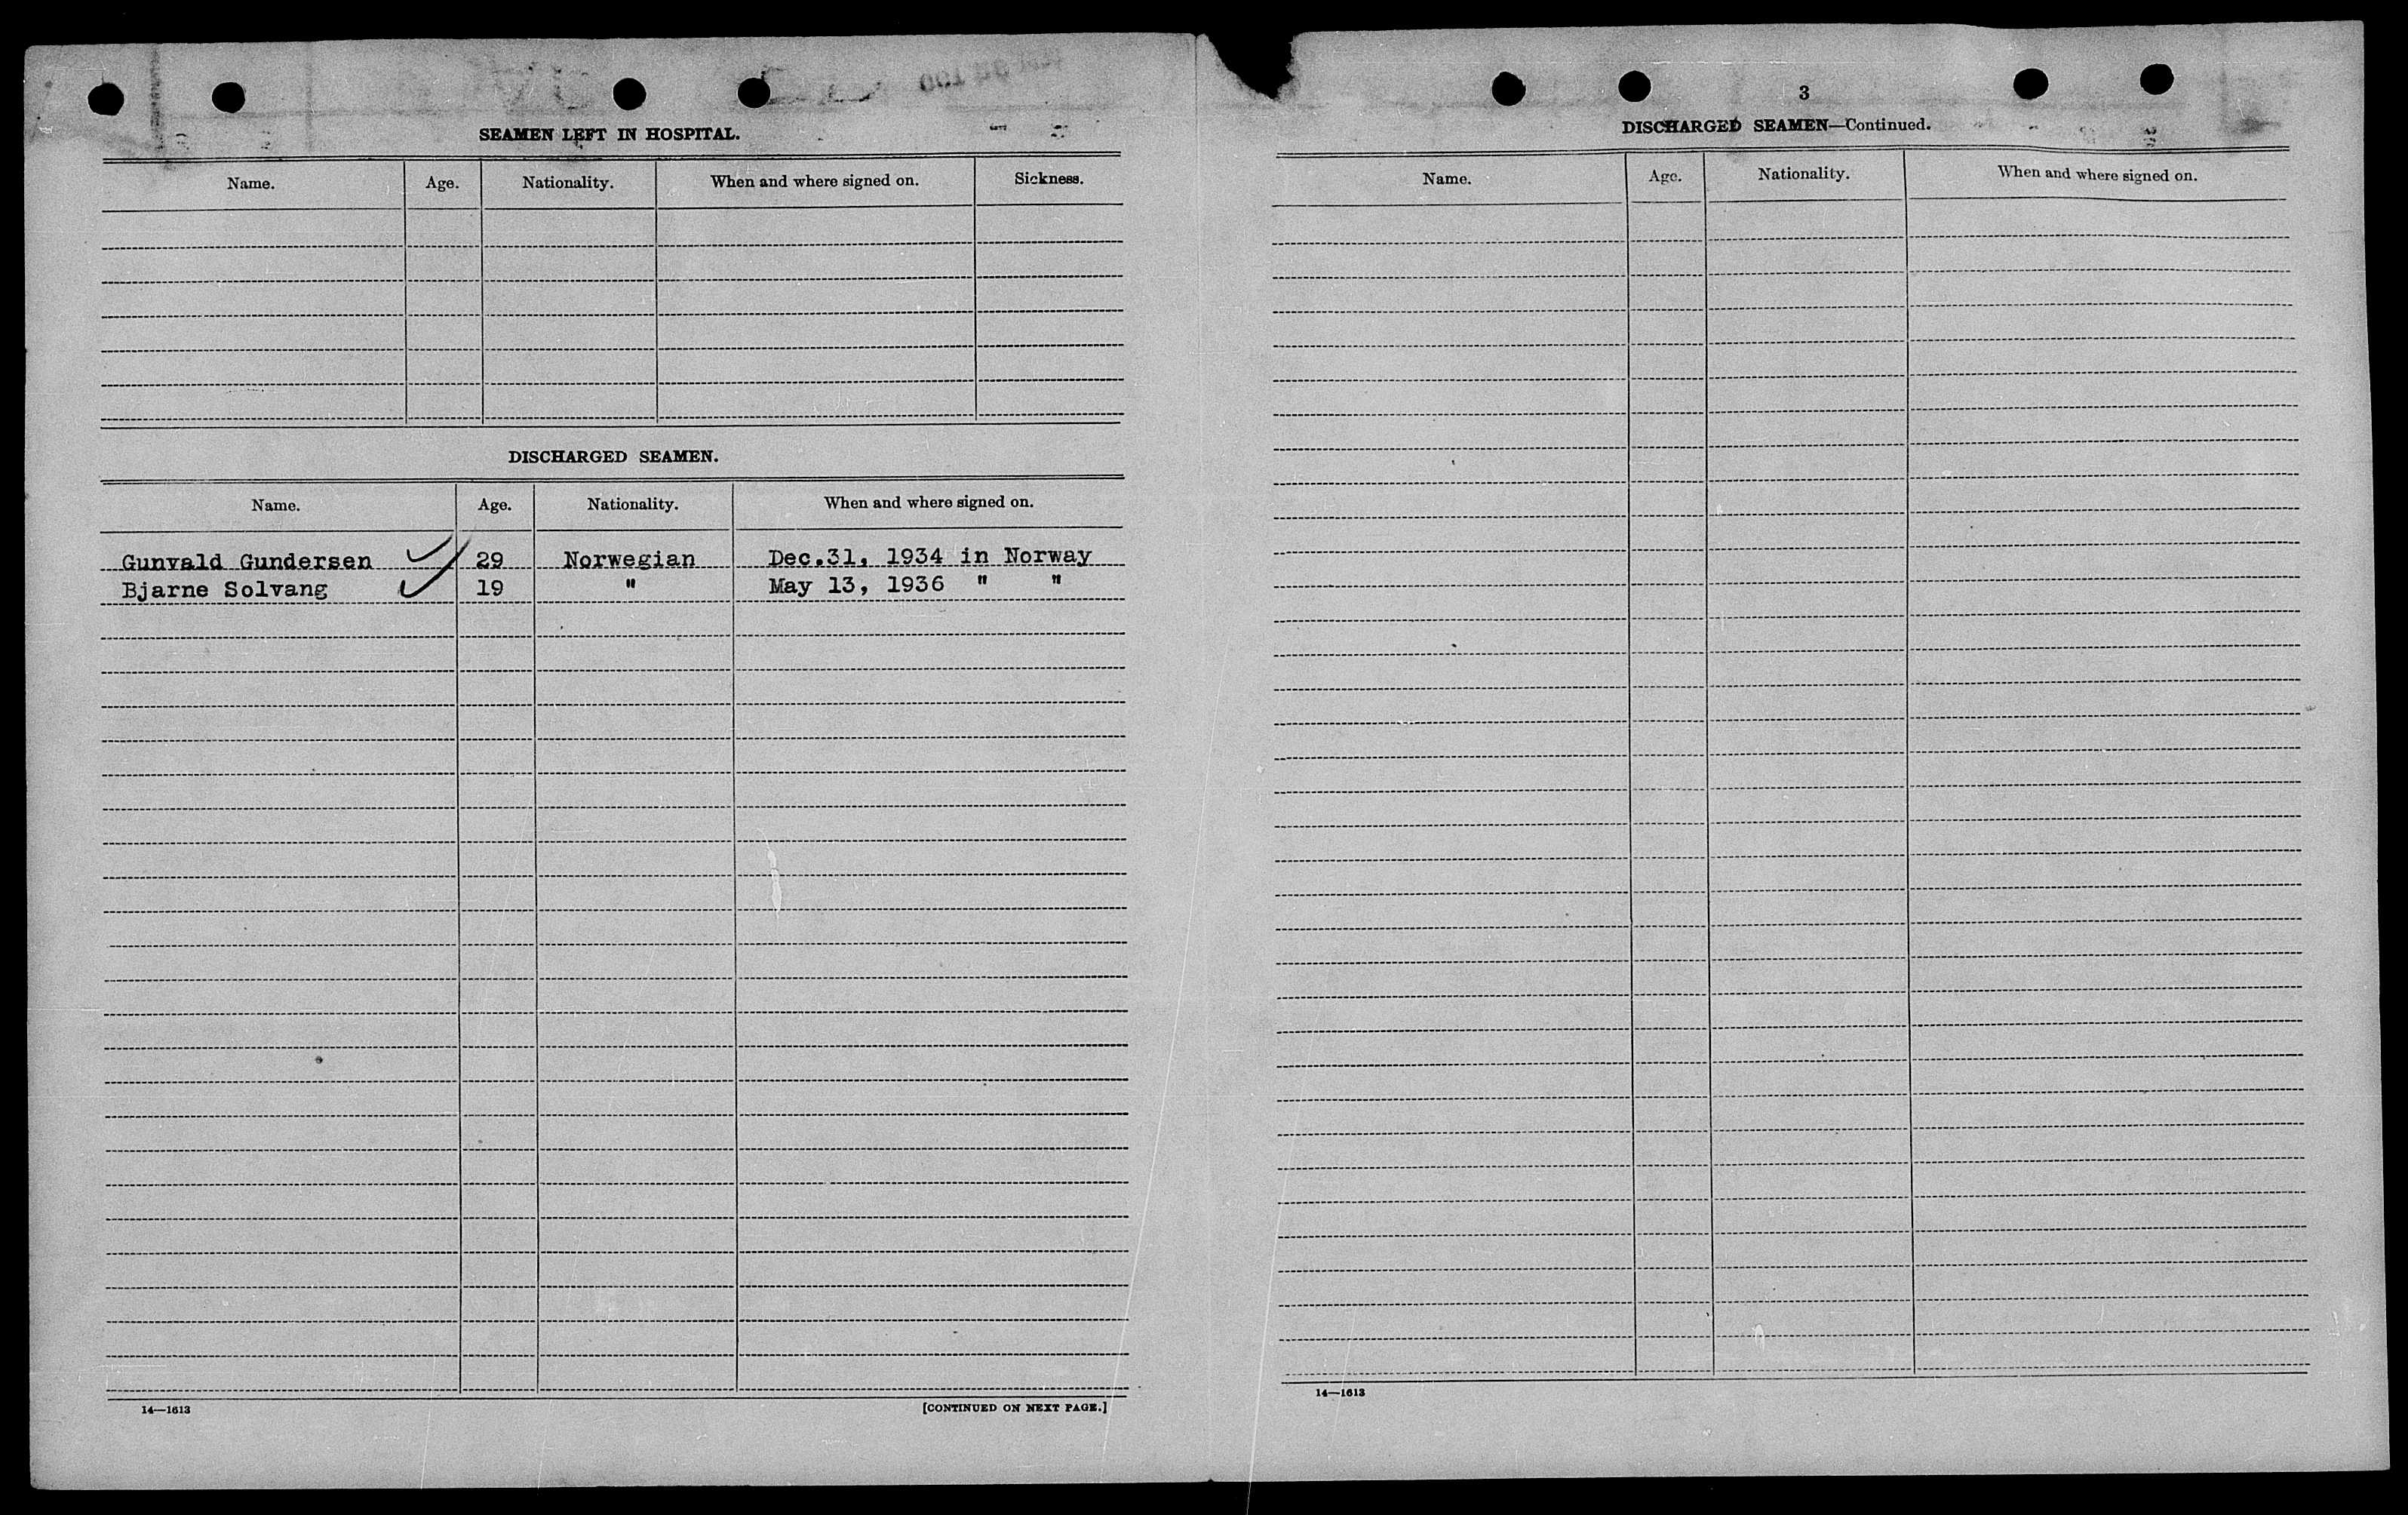 SEAMEN LEFT IN HOSPITAL.
Name. Age. Nationality. When and where signed on. Sickness.
DISCHARGED SEAMEN.
Name. Age. Nationality. When and where signed on.
Gunvald Gundersen 29 Norwegian Dec.31, 1934 in Norway
Bjarne Solvang 19 " May 13, 1936 " "
14—1613 [CONTINUED ON NEXT PAGE.]
3
DISCHARGED SEAMEN—Continued.
Name. Age. Nationality. When and where signed on.
14—1613